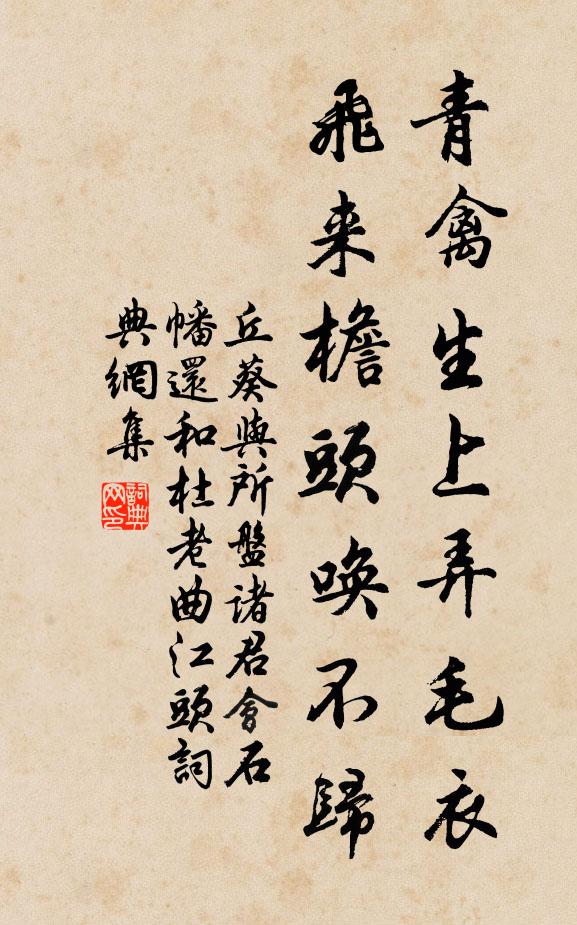 青禽生上弄毛衣
飛来檐頭喚不歸
丘葵與所盤諸君會石
幡還和杜老曲江頭詞
典網集
詞典
网印